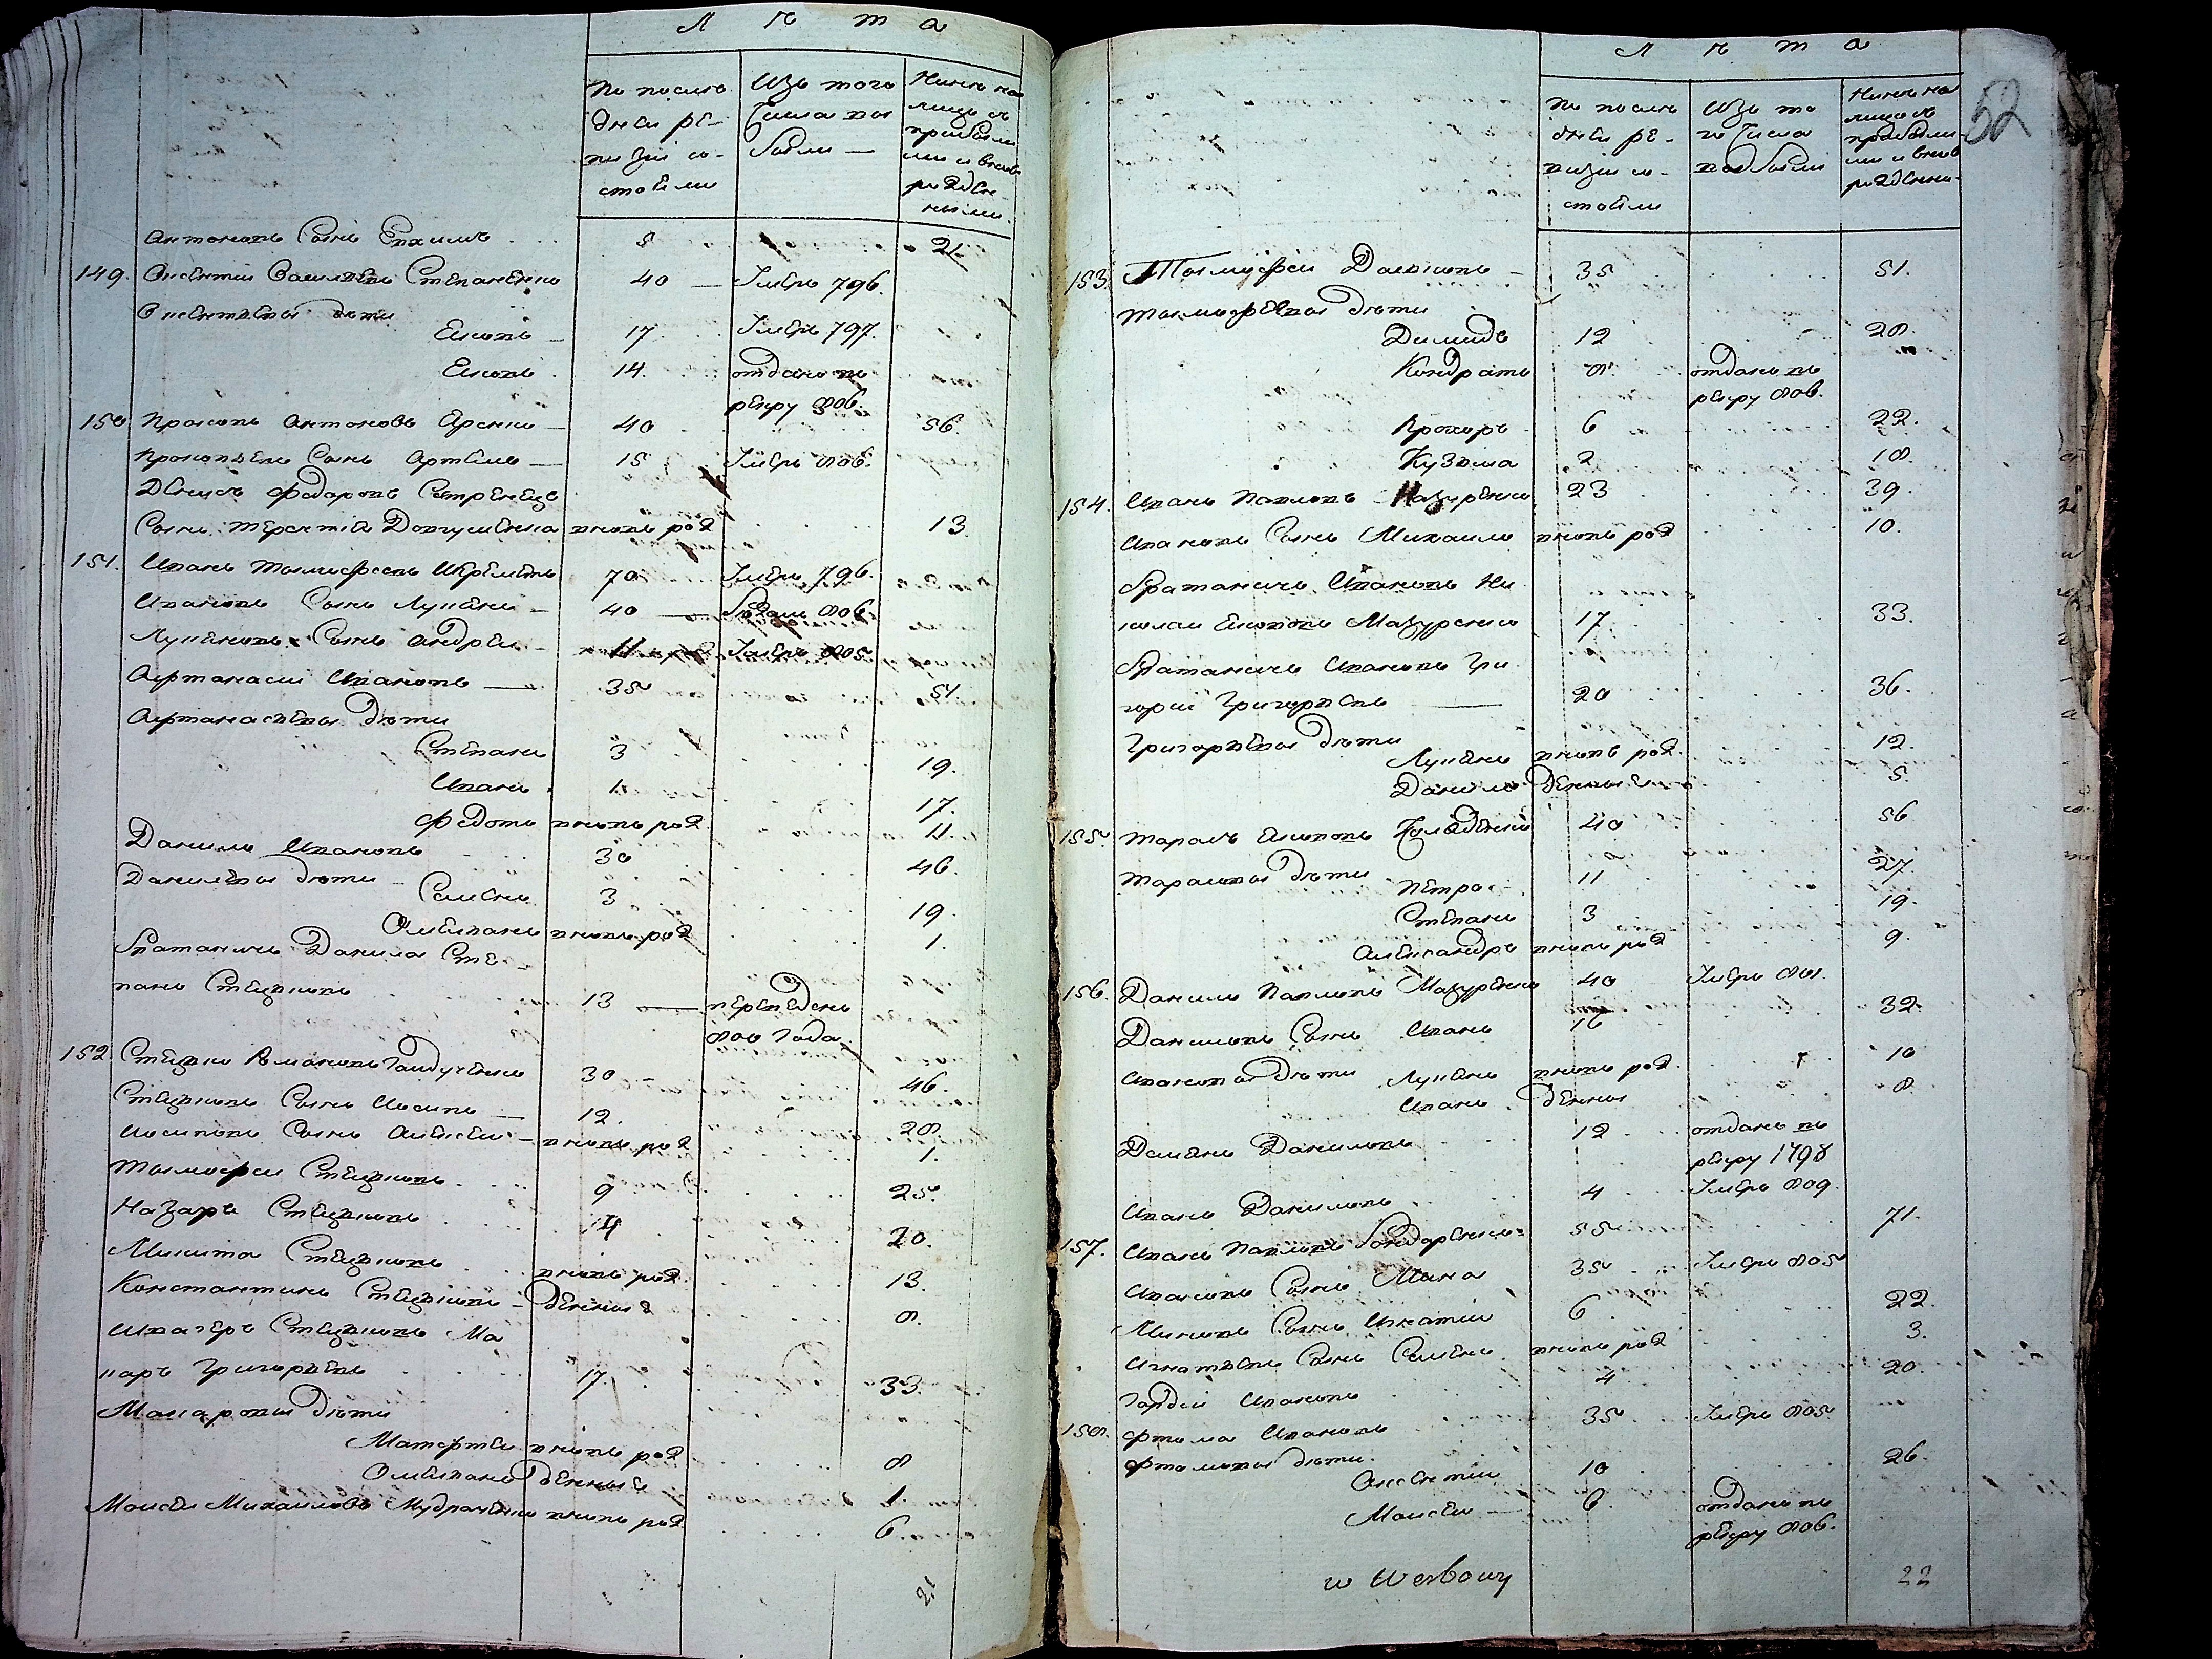 Лѣта
По послѣ
дней ре-
визіи со-
стояли
Изъ того
числа вы
были —
Нынѣ на
лицо съ
прибылы
ми и вновь
рожден
ными
Антоновъ сынъ Евхимъ 5 21
149. Онсентій Васильевъ Степаненко 40 — Умеръ 796.
Онсентьевы дѣти
Яковъ — 17 Умеръ 797.
Яковъ 14. отданъ въ
рекру 806.
150 Прокопъ Антоновъ — 40 56.
Прокопьевъ сынъ Артемъ — 15 Умеръ 806.
Денисъ Федоровъ
Сынъ Терентій вновь род 13.
151. Иванъ Тымофеевъ 70 Умеръ 796.
Ивановъ сынъ Лукьянъ — 40 — 806
Лукьяновъ сынъ Андрей — 11 Умеръ 805
Афтанасий Ивановъ — 35 51.
Афтанасьевы дѣти
Степанъ 3 19.
Иванъ 1. 17.
Федотъ вновь род 11.
Данило Ивановъ 30 46.
Даниловы дѣти —
Семенъ 3 19.
Омельянъ вновь род 1.
Братаничь Данила Сте-
панъ Стецковъ 13 — переведенъ
806 года
152 Стецко Романовъ Гандученко 30 46.
Стецковъ сынъ Иосипъ — 12. 28.
Иосиповъ сынъ Алексей — вновь род 1.
Тымофей Стецковъ 9 25.
Назаръ Стецковъ 14 20.
Микита Стецковъ вновь род 13.
Константинъ Стецковъ — денные 8.
Шваггеръ Стецковъ Ма
каръ Григорьевъ 17. 33.
Макаровы дѣти
Матефтей вновь род 8
Омельянъ денные 1
Моисей Михайловъ Мудраченко вновь род 6.
21
Лѣта
52
По послѣ
дней ре-
визіи со-
стояли
Изъ то
го числа
выбыли
Нынѣ на
лицо съ
прибылы
ми и вновь
рожденны-
153. Тымофей Данковъ — 35 51.
Тымофеевы дѣти
Демидъ 12 28.
Кондратъ 8. отданъ въ
рекру 806.
Прохоръ 6 22.
Кузьма 2 18.
154. Иванъ Павловъ Мазуренко 23 39.
Ивановъ сынъ Михайло вновь род 10.
Братаничь Ивановъ Ни
колай Якововъ Мазуренко 17 33.
Братаничь Ивановъ Гри
горій Григорьевъ — 20 36.
Григорьевы дѣти
Лукьянъ вновь род. 12.
Данило денные 5.
155. Тарасъ Якововъ 40 56
Тарасовы дѣти
Петро 11 27.
Степанъ 3 19.
Александръ вновь род 9.
156. Данило Павловъ Мазуренко 40 Умеръ 801.
Даниловъ сынъ Иванъ 16 32.
Ивановы дѣти Лукьянъ вновь род. 10
Иванъ денные 8
Демьянъ Даниловъ 12 отданъ въ
рекру 1798
Иванъ Даниловъ 4 Умеръ 809.
157. Иванъ Павловъ Бондаренко 55 71.
Ивановъ сынъ Мина 35 Умеръ 805
Миновъ сынъ Игнатій 6 22.
Игнатьевъ сынъ Семенъ вновь род 3.
Гордей Ивановъ 4 20.
158. Фтома Ивановъ 35 Умеръ 805.
Фтомовы дѣти.
Онсентій 10 26.
Моисей — 6 отданъ въ
рекру 806.
w Werbowy
22